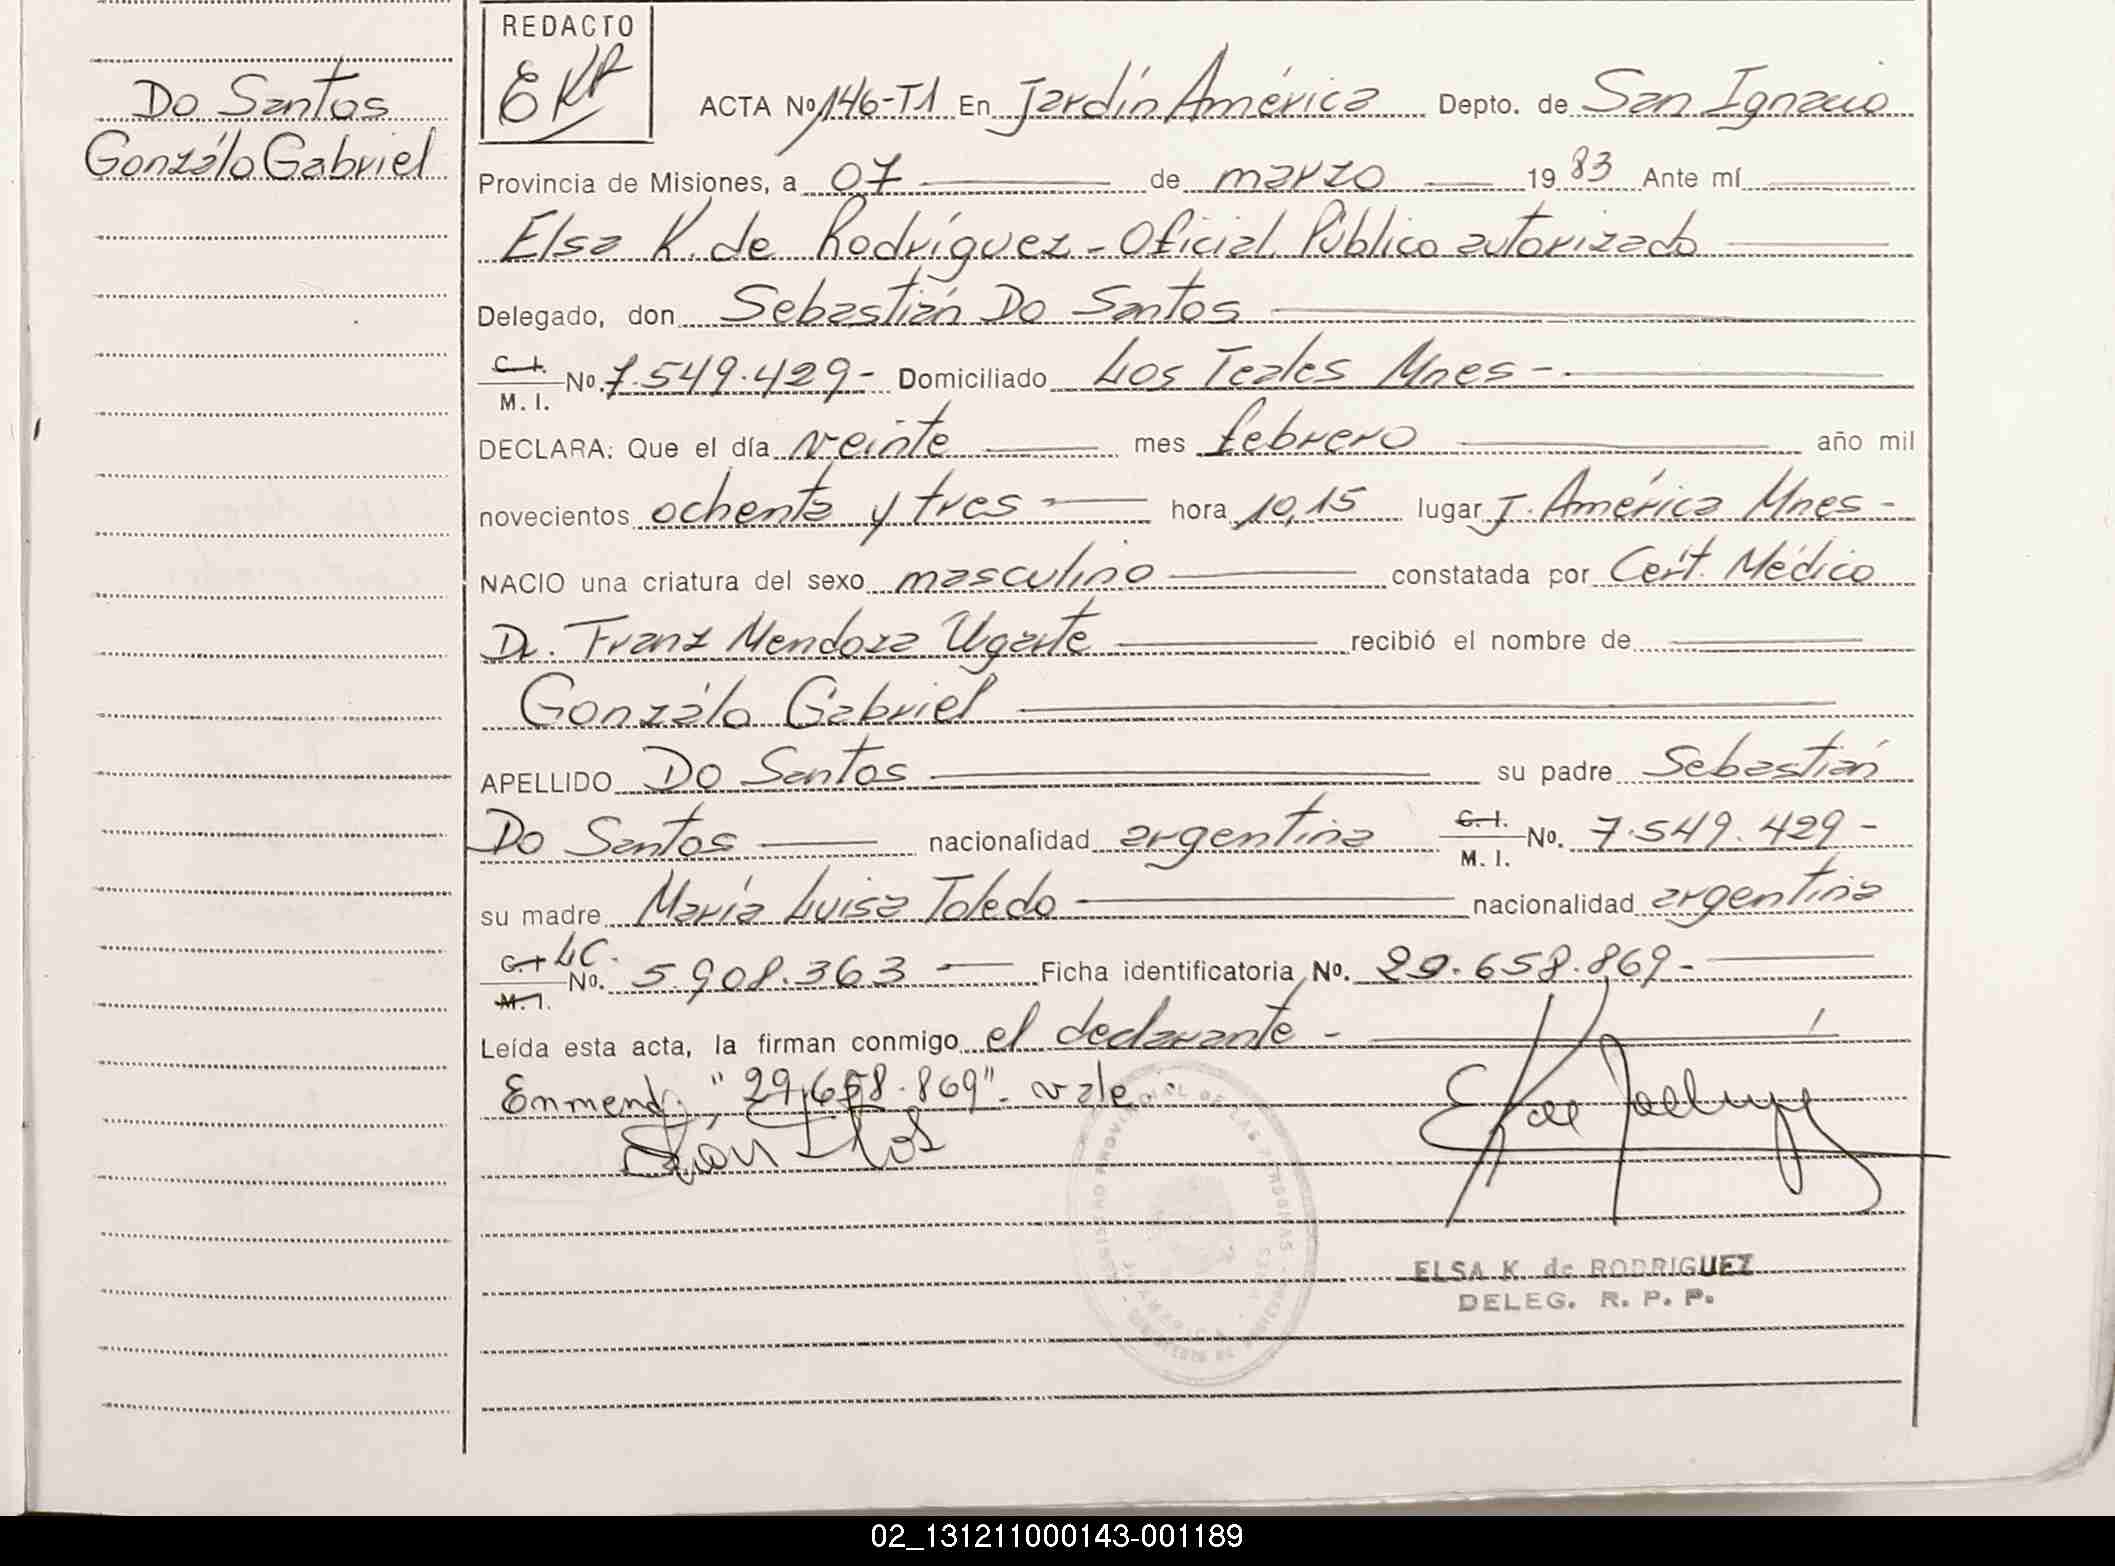 Do Santos
Gonzálo Gabriel
REDACTO
EKR
ACTA Nº 146-T1 En Jardín América Depto. de San Ignacio
Provincia de Misiones, a 07 de marzo 1983 Ante mí
Elsa K. de Rodríguez - Oficial Público autorizado
Delegado, don Sebastián Do Santos
C. I.
M. I. No. 7.549.429- Domiciliado Los Teales Mnes -
DECLARA: Que el día veinte mes febrero año mil
novecientos ochenta y tres - hora 10,15 lugar J. América Mnes -
NACIO una criatura del sexo masculino constatada por Cert. Médico
Dr. Franz Mendoza Ugarte recibió el nombre de
Gonzálo Gabriel
APELLIDO Do Santos su padre Sebastián
Do Santos nacionalidad argentina C. I.
M. I. No. 7.549.429-
su madre María Luisa Toledo nacionalidad argentina
C. I. LC.
M. I. No. 5.908.363 Ficha identificatoria No. 29.658.869-
Leída esta acta, la firman conmigo el declarante -
Enmend: "29.658.869"- vale.
ELSA K. de RODRIGUEZ
DELEG. R. P. P.
02_131211000143-001189